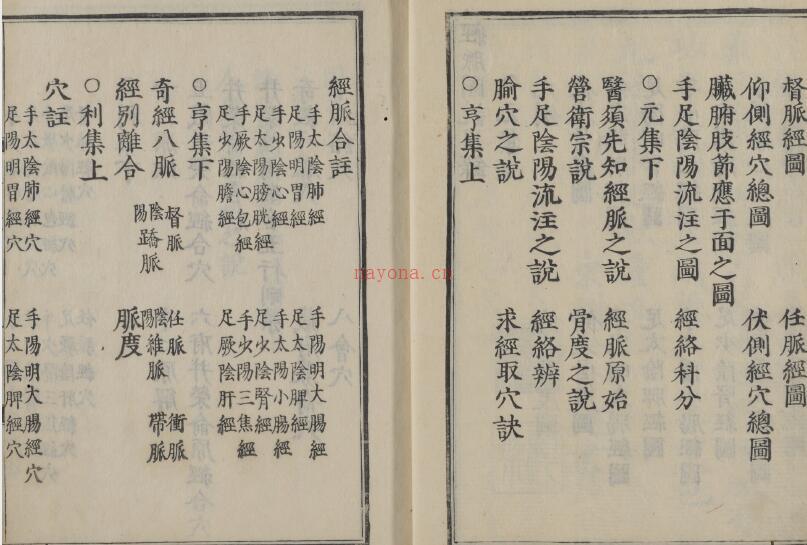 督脈經圖 任脈經圖
仰側經穴總圖 伏側經穴總圖
臟腑肢節應于面之圖
手足陰陽流注之圖 經絡科分
○元集下
醫須先知經脈之說 經脈原始
營衛宗說 骨度之說
手足陰陽流注之說 經絡辨
腧穴之說 求經取穴訣
○亨集上
經脈合註
手太陰肺經 手陽明大腸經
足陽明胃經 足太陰脾經
手少陰心經 手太陽小腸經
足太陽膀胱經 足少陰腎經
手厥陰心包經 手少陽三焦經
足少陽膽經 足厥陰肝經
○亨集下
奇經八脈 督脈 任脈 衝脈
陰蹻脈 陰維脈 帶脈
陽 陽
經別離合 脈度
○利集上
穴註
手太陰肺經穴 手陽明大腸經穴
足陽明胃經穴 足太陰脾經穴
nayona.cn